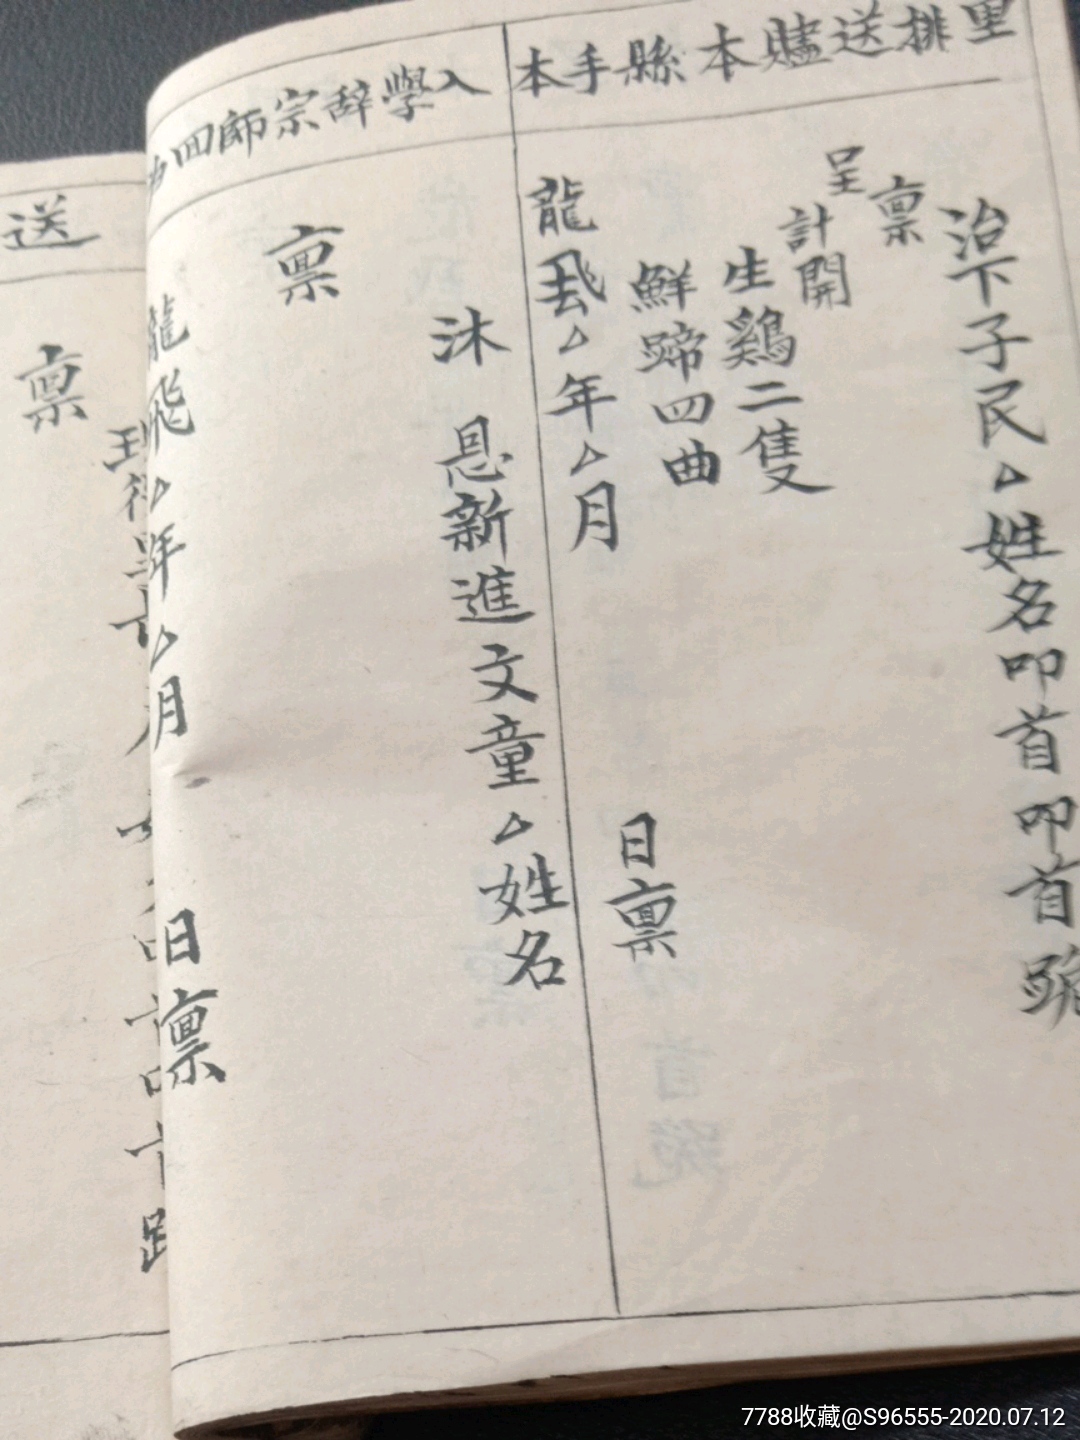 里排送贐本縣手本
治下子民△姓名叩首叩首跪
稟
呈
計開
生鷄二隻
鮮蹄四曲
龍飛△年△月
日稟
入學辞宗師回
沐 恩新進文童△姓名
稟
龍飛△年△月
日稟
送
稟
7788收藏@S96555-2020.07.12